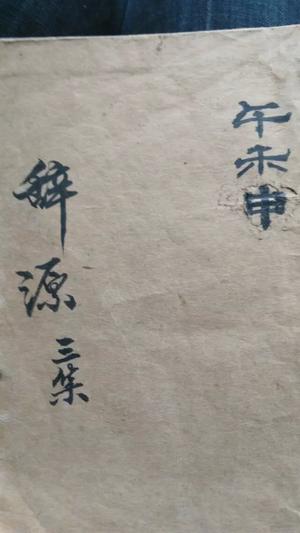 午未申
辭源
三集